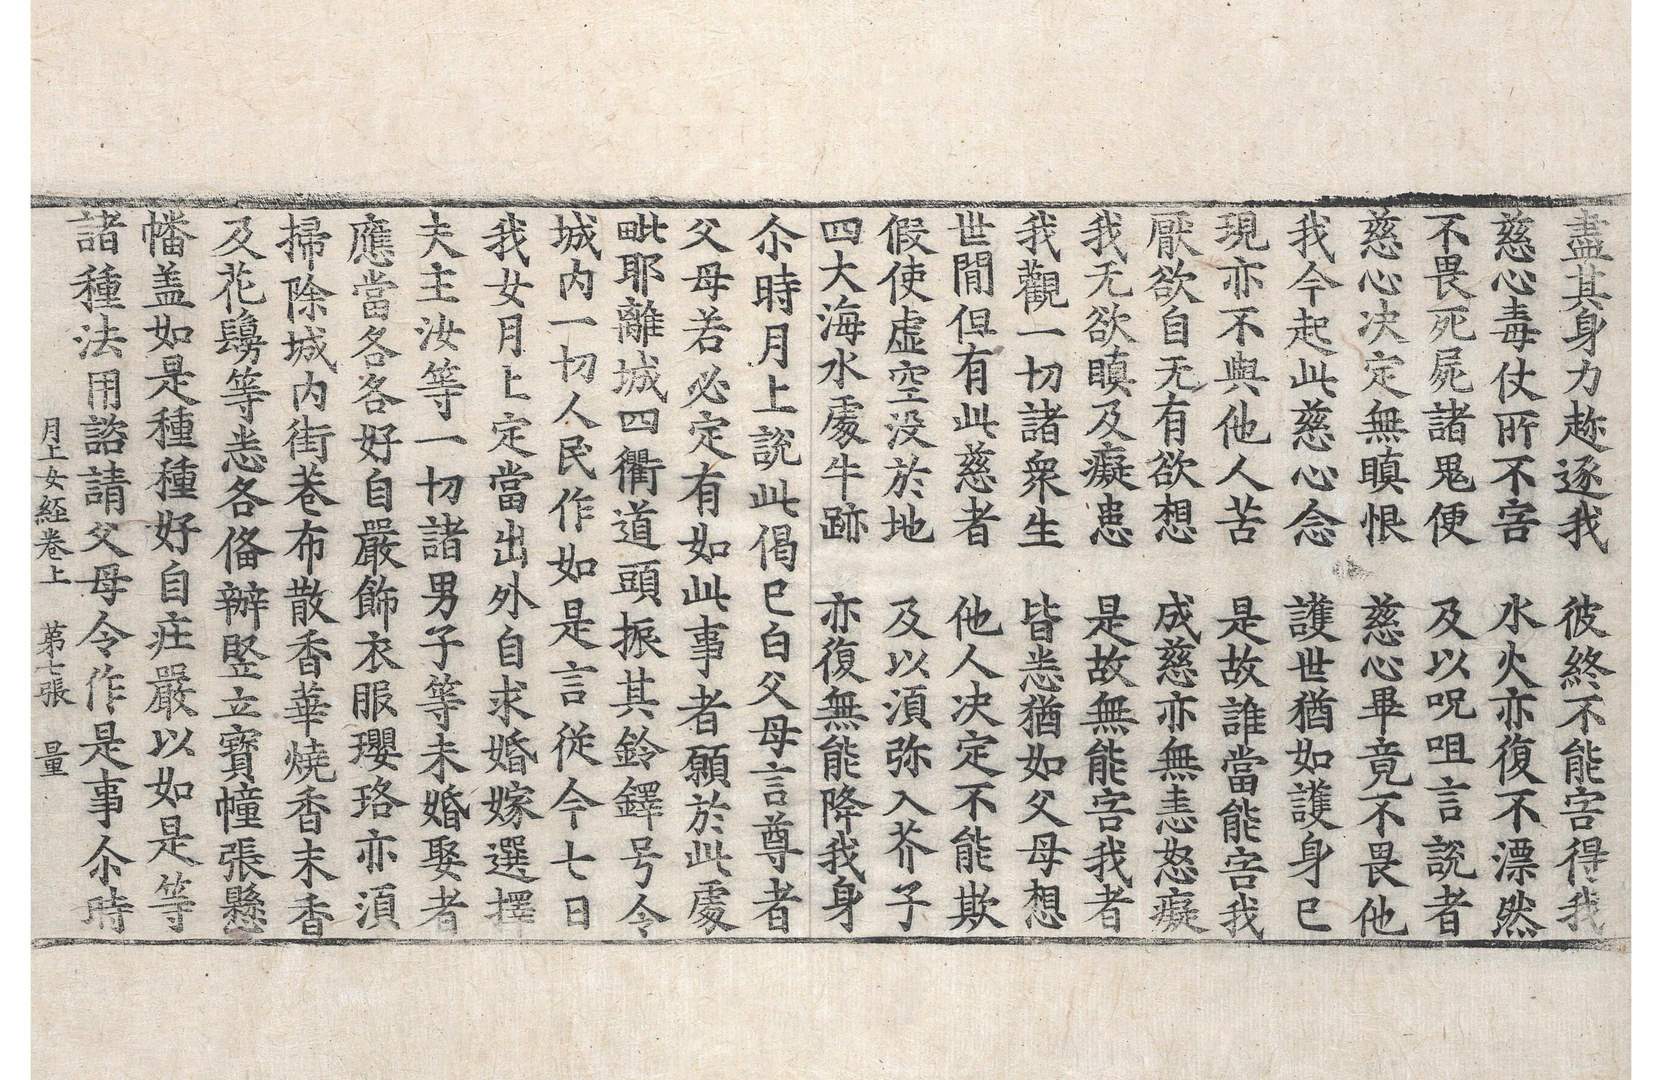 盡其身力趂逐我　彼終不能害得我
慈心毒仗所不害　水火亦復不漂然
不畏死屍諸鬼便　及以呪咀言說者
慈心决定無瞋恨　慈心畢竟不畏他
我今起此慈心念　護世猶如護身巳
現亦不與他人苦　是故誰當能害我
厭欲自无有欲想　成慈亦無恚怒癡
我无欲瞋及癡患　是故無能害我者
我觀一切諸衆生　皆悉猶如父母想
世間但有此慈者　他人决定不能欺
假使虛空没於地　及以湏弥入芥子
四大海水處牛跡　亦復無能降我身
尒時月上說此偈巳白父母言尊者
父母若必定有如此事者願於此處
毗耶離城四衢道頭振其鈴鐸号令
城内一切人民作如是言從今七日
我女月上定當出外自求婚嫁選擇
夫主汝等一切諸男子等未婚娶者
應當各各好自嚴飾衣服瓔珞亦湏
掃除城内街巷布散香華燒香末香
及花鬘等悉各俻辦竪立寶幢張懸
幡盖如是種種好自庄嚴以如是等
諸種法用諮請父母令作是事尒時
月上女經卷上　第七張　量